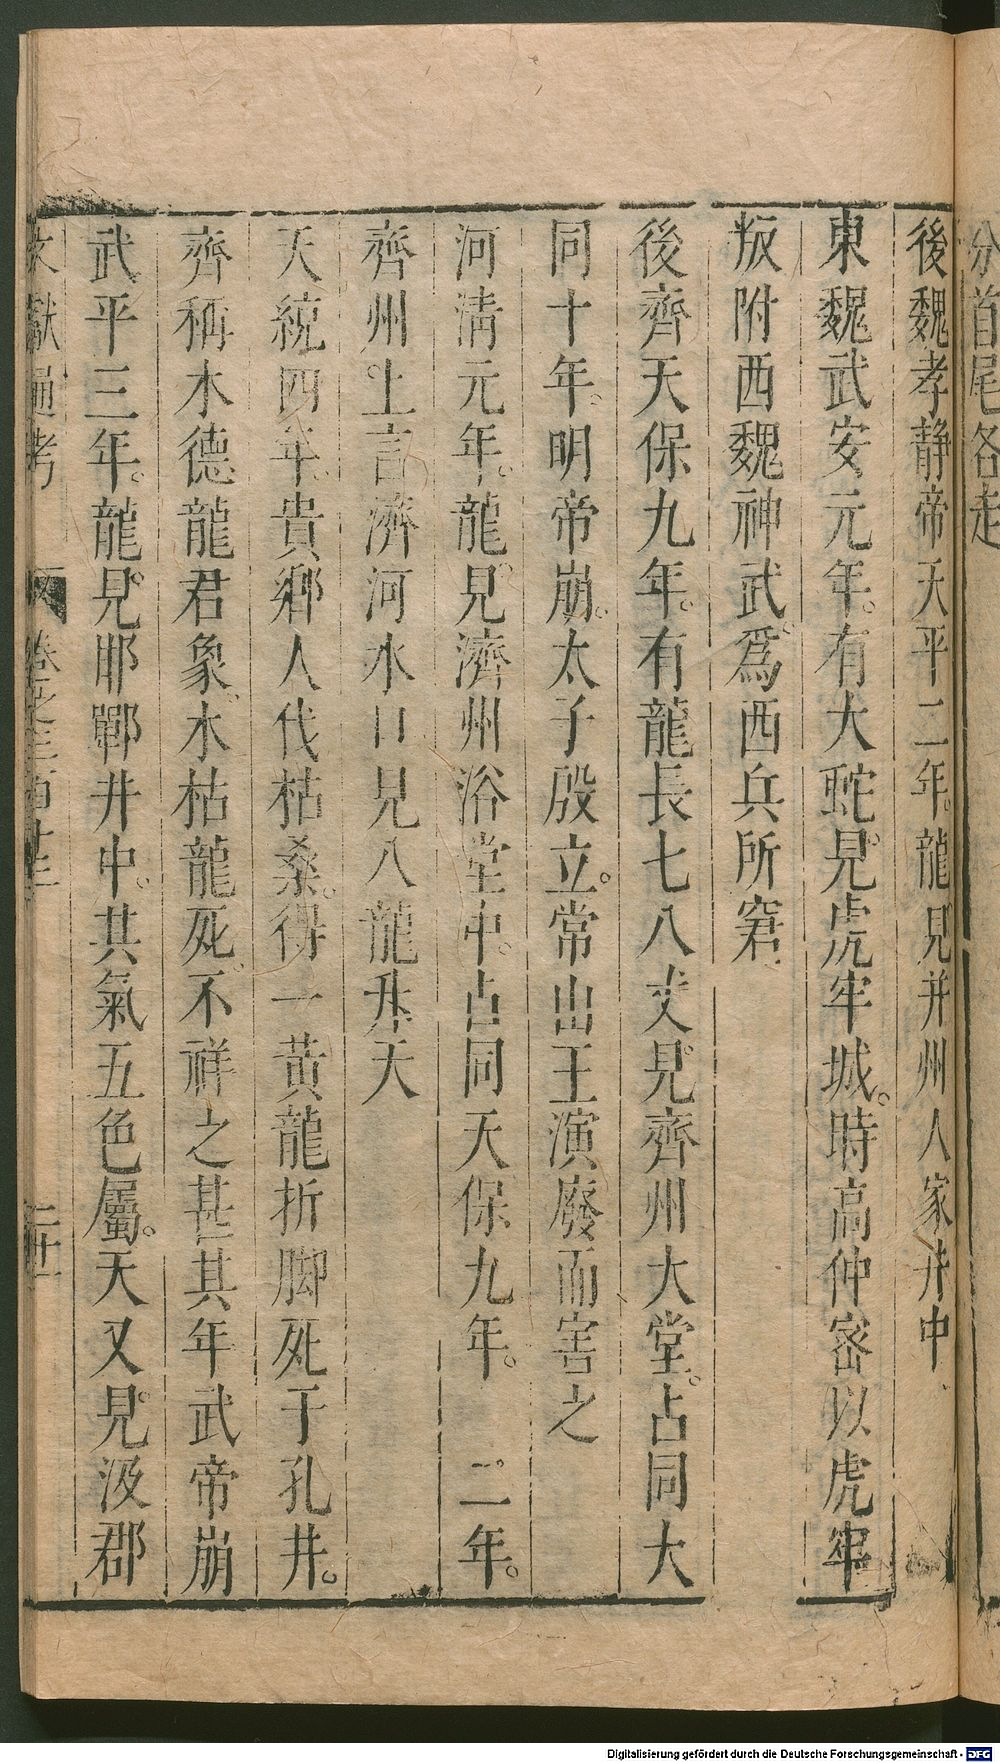 分首尾各走
後魏孝靜帝天平二年。龍見并州人家井中
東魏武安元年。有大蛇見虎牢城。時高仲密以虎牢
叛附西魏神武。爲西兵所窘
後齊天保九年。有龍長七八丈見齊州大堂。占同大
同十年。明帝崩。太子殷立。常山王演廢而害之
河清元年。龍見濟州浴堂中。占同天保九年。 二年。
齊州上言濟河水口見八龍升天
天統四年。貴鄉人伐枯桑。得一黃龍折脚死于孔井。
齊稱水德龍君象。水枯龍死。不祥之甚其年武帝崩
武平三年。龍見邯鄲井中。其氣五色屬。天又見汲郡
文獻通考 卷之三百十三
Digitalisierung gefördert durch die Deutsche Forschungsgemeinschaft - DFG